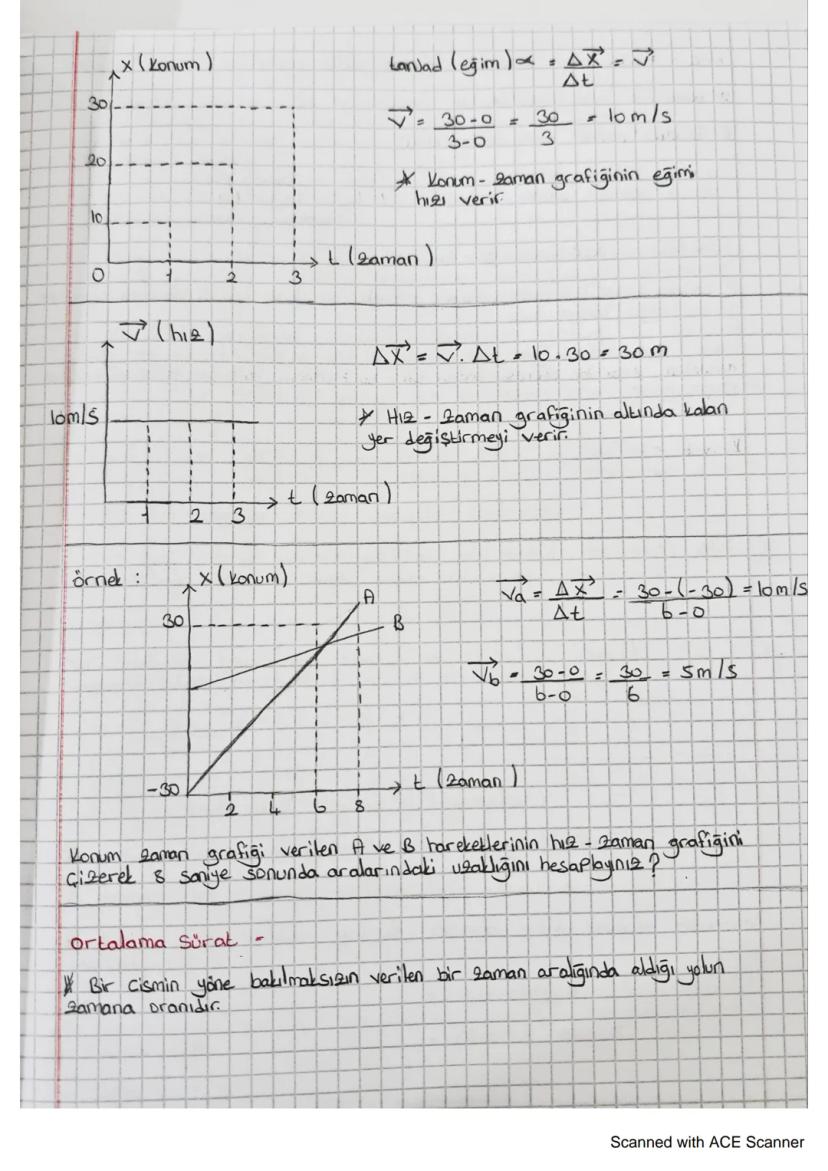 x (konum)
30
20
10
0
1
2
3
t (zaman)
tanjad (eğim) α = Δx / Δt = v
v = 30-0 / 3-0 = 30 / 3 = 10 m/s
* Konum - zaman grafiğinin eğimi
hızı verir.
v (hız)
10m/s
1
2
3
t (zaman)
Δx = v . Δt = 10 . 30 = 30 m
* Hız - zaman grafiğinin altında kalan
yer değiştirmeyi verir.
örnek :
x (konum)
A
B
30
-30
2
4
6
8
t (zaman)
va = Δx / Δt = 30-(-30) / 6-0 = 10m/s
vb = 30-0 / 6-0 = 30 / 6 = 5m/s
Konum zaman grafiği verilen A ve B hareketlerinin hız - zaman grafiğini
çizerek 8 saniye sonunda aralarındaki uzaklığını hesaplayınız ?
Ortalama Sürat -
* Bir cismin yöne bakılmaksızın verilen bir zaman aralığında aldığı yolun
zamana oranıdır.
Scanned with ACE Scanner